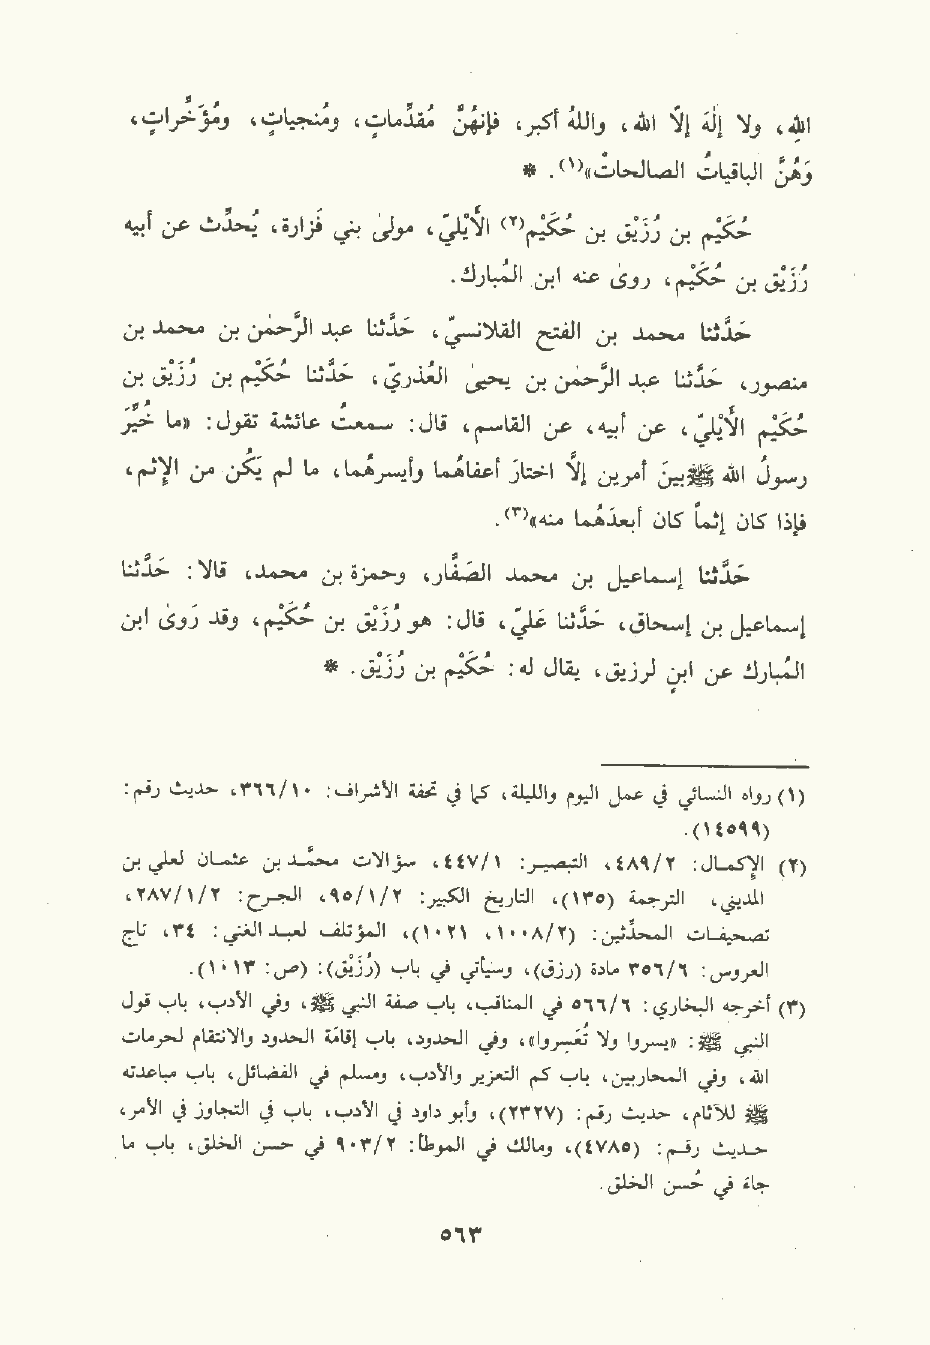 اللهِ، ولا إلٰهَ إلاّ الله، واللهُ أكبر، فإنهُنَّ مُقدِّماتٍ، ومُنجياتٍ، ومُؤَخِّراتٍ،
وَهُنَّ الباقياتُ الصالحاتُ»(١). *
حُكَيْم بن رُزَيْق بن حُكَيْم(٢) الأَيْليّ، مولىٰ بني فَزارة، يُحدِّث عن أبيه
رُزَيْق بن حُكَيْم، روىٰ عنه ابن المُبارك.
حَدَّثنا محمد بن الفتح القلانسيّ، حَدَّثنا عبد الرَّحمٰن بن محمد بن
منصور، حَدَّثنا عبد الرَّحمٰن بن يحيىٰ العُذريّ، حَدَّثنا حُكَيْم بن رُزَيْق بن
حُكَيْم الأَيْليّ، عن أبيه، عن القاسم، قال: سمعتُ عائشة تقول: «ما خُيِّرَ
رسولُ الله ﷺ بينَ أمرين إلاَّ اختارَ أعفاهُما وأيسرهُما، ما لم يَكُن من الإثم،
فإذا كان إثماً كان أبعدَهُما منه»(٣).
حَدَّثنا إسماعيل بن محمد الصَّفَّار، وحمزة بن محمد، قالا: حَدَّثنا
إسماعيل بن إسحاق، حَدَّثنا عَليّ، قال: هو رُزَيْق بن حُكَيْم، وقد رَوىٰ ابن
المُبارك عن ابنٍ لرزيق، يقال له: حُكَيْم بن رُزَيْق. *
(١) رواه النسائي في عمل اليوم والليلة، كما في تحفة الأشراف: ٣٦٦/١٠، حديث رقم:
(١٤٥٩٩).
(٢) الإكمال: ٤٨٩/٢، التبصير: ٤٤٧/١، سؤالات محمَّد بن عثمان لعلي بن
المديني، الترجمة (١٣٥)، التاريخ الكبير: ٩٥/١/٢، الجرح: ٢٨٧/١/٢،
تصحيفات المحدِّثين: (١٠٠٨/٢، ١٠٢١)، المؤتلف لعبد الغني: ٣٤، تاج
العروس: ٣٥٦/٦ مادة (رزق)، وسيأتي في باب (رُزَيْق): (ص: ١٠١٣).
(٣) أخرجه البخاري: ٥٦٦/٦ في المناقب، باب صفة النبي ﷺ، وفي الأدب، باب قول
النبي ﷺ: «يسروا ولا تُعَسِروا»، وفي الحدود، باب إقامَة الحدود والانتقام لحرمات
الله، وفي المحاربين، باب كم التعزير والأدب، ومسلم في الفضائل، باب مباعدته
ﷺ للآثام، حديث رقم: (٢٣٢٧)، وأبو داود في الأدب، باب في التجاوز في الأمر،
حديث رقم: (٤٧٨٥)، ومالك في الموطأ: ٩٠٣/٢ في حسن الخلق، باب ما
جاءَ في حُسن الخلق.
٥٦٣